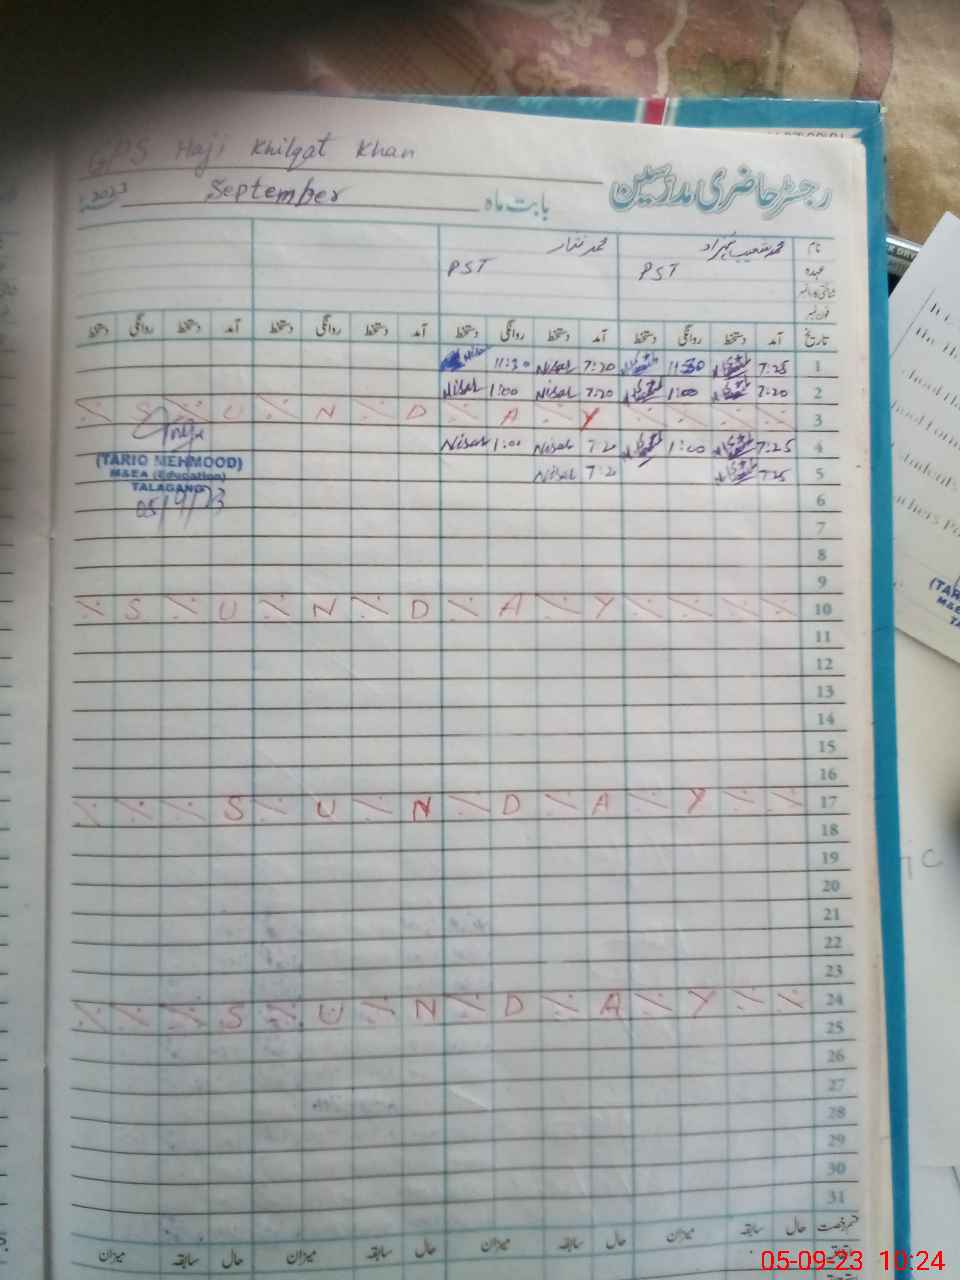 GPS Haji Khilqat Khan
رجسٹر حاضری مدرسین
بابت ماہ September 2023
نام محمد شعیب شہزاد محمد نثار
عہدہ PST PST
شناختی کارڈ نمبر
فون نمبر
تاریخ آمد دستخط روانگی دستخط آمد دستخط روانگی دستخط آمد دستخط روانگی دستخط آمد دستخط روانگی دستخط
1 7:25 11:30 7:20 Nisar 11:30 Nisar
2 7:20 1:00 7:20 Nisar 1:00 Nisar
3 SUNDAY
4 7:25 1:00 7:20 Nisar 1:00 Nisar
5 7:25 7:20 Nisar
(TARIQ MEHMOOD)
M&EA (Education)
TALAGANG
05/9/23
6
7
8
9
10 SUNDAY
11
12
13
14
15
16
17 SUNDAY
18
19
20
21
22
23
24 SUNDAY
25
26
27
28
29
30
31
قسم رخصت حال سابقہ میزان حال سابقہ میزان حال سابقہ میزان حال سابقہ میزان
05-09-23 10:24